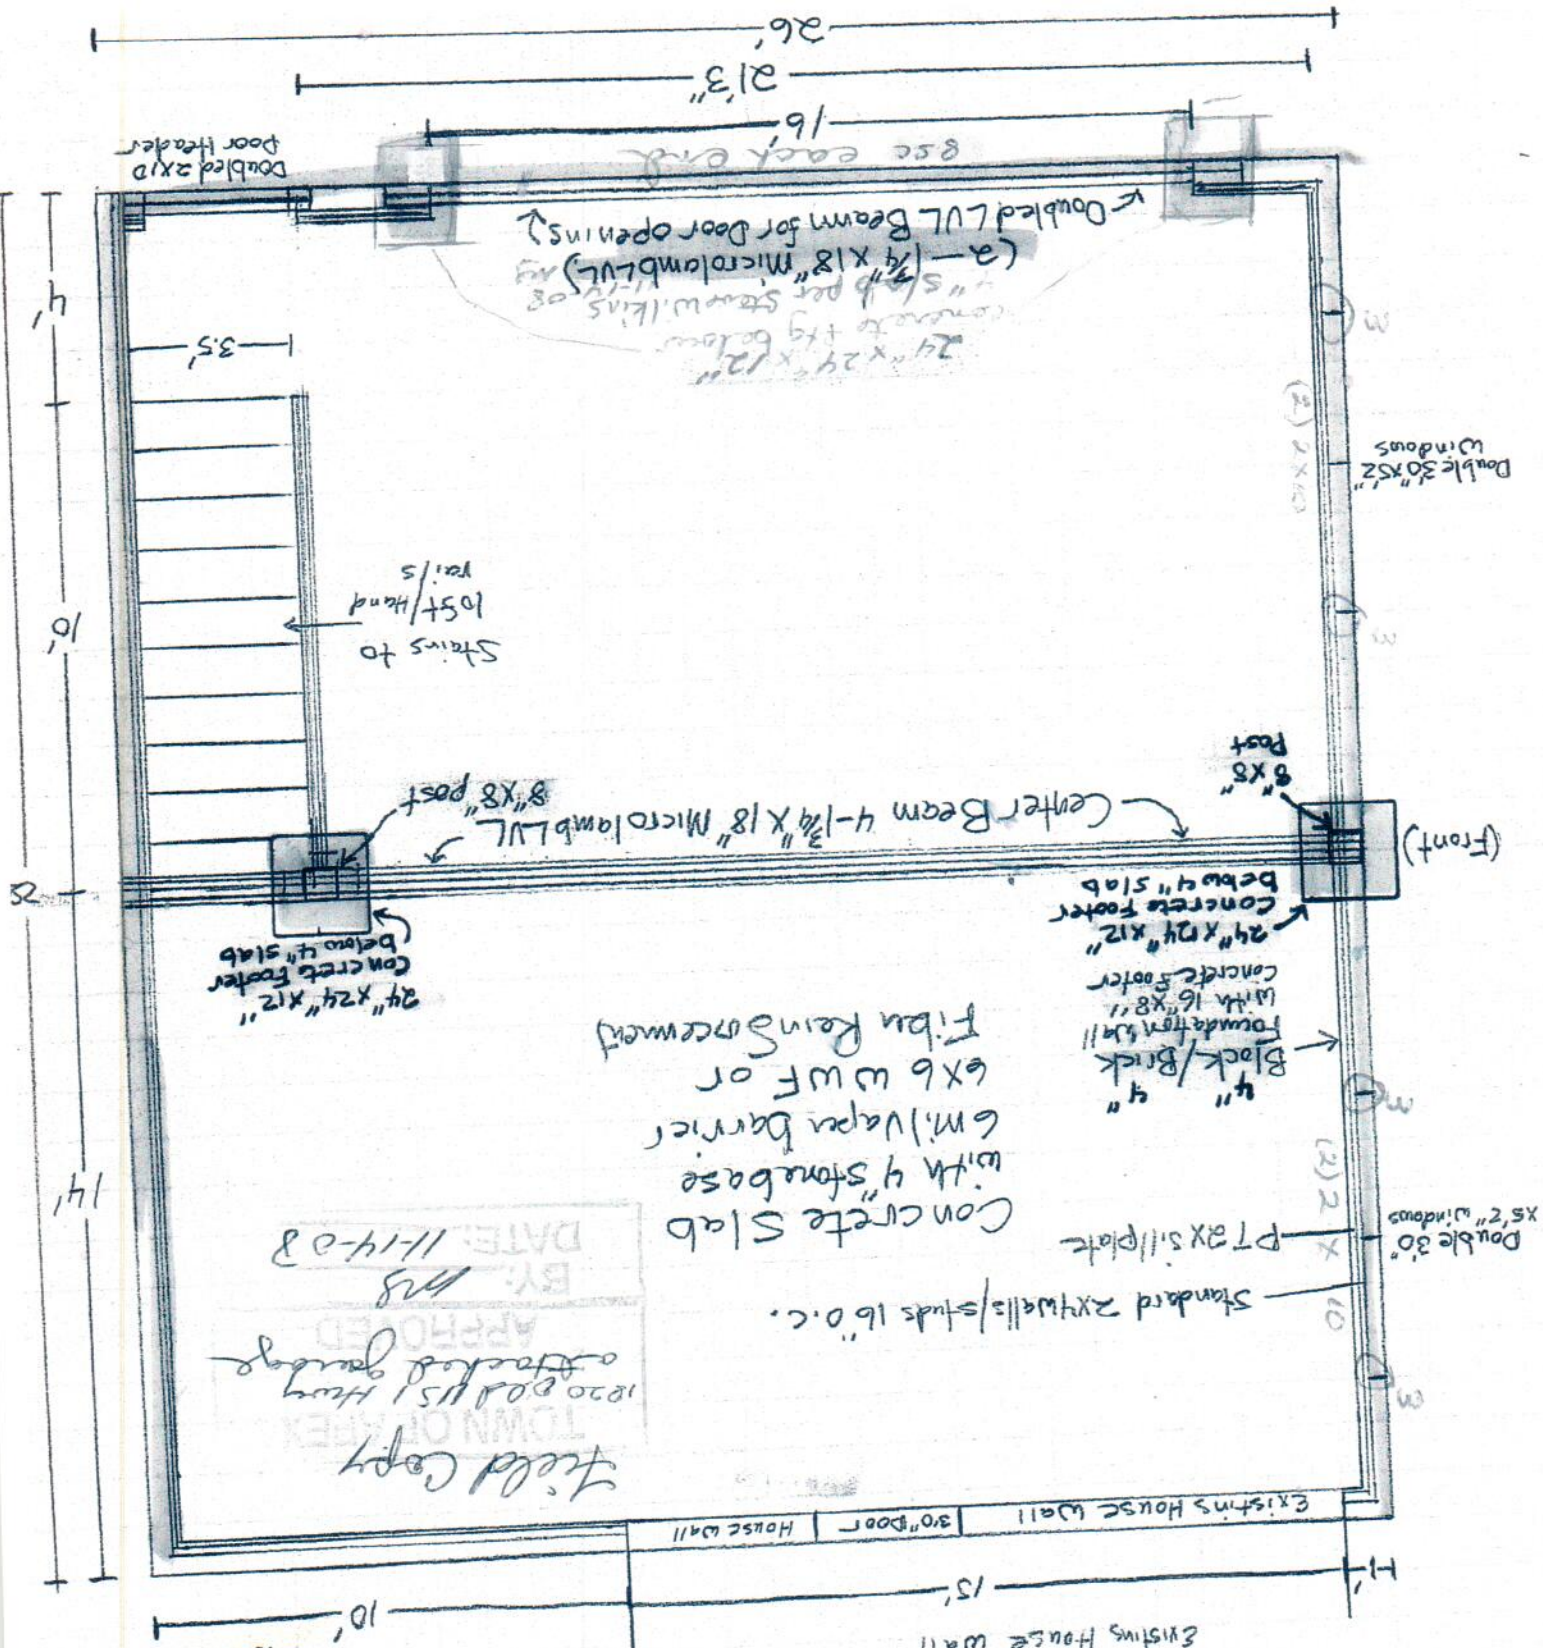 Existing House Wall
1'
15'
10'
Existing House Wall
3'0" Door
House Wall
Field Copy
TOWN OF APEX
1820 Old US 1 Hwy
attached garage
APPROVED
BY:
DATE: 11-14-08
Standard 2x4 walls/studs 16" O.C.
PT 2x Sillplate
Double 3'0"
x5'2" windows
(2) 2 x 10
3
3
Concrete Slab
with 4" Stonebase
6 mil Vaper barrier
6x6 WWF or
Fiber Reinforcement
4" 4"
Block/Brick
Foundation Wall
with 16"x8"
Concrete Footer
24"x24"x12"
Concrete Footer
below 4" slab
24"x24"x12"
Concrete Footer
below 4" slab
14'
(Front)
8"x8"
Post
Center Beam 4-1¾"x18" Microlamb LVL
8"x8" post
Stairs to
loft/Hand
rails
10'
3
3
Double 3'0"x5'2"
windows
(2) 2x10
24" x 24" x 12"
concrete ftg below
4" slab per Steve Wilkins
(2-1¾"x18" Microlamb LVL)
Doubled LVL Beam for Door opening
3.5'
4'
8sc each end
Doubled 2x10
Door Header
16'
21'3"
26'